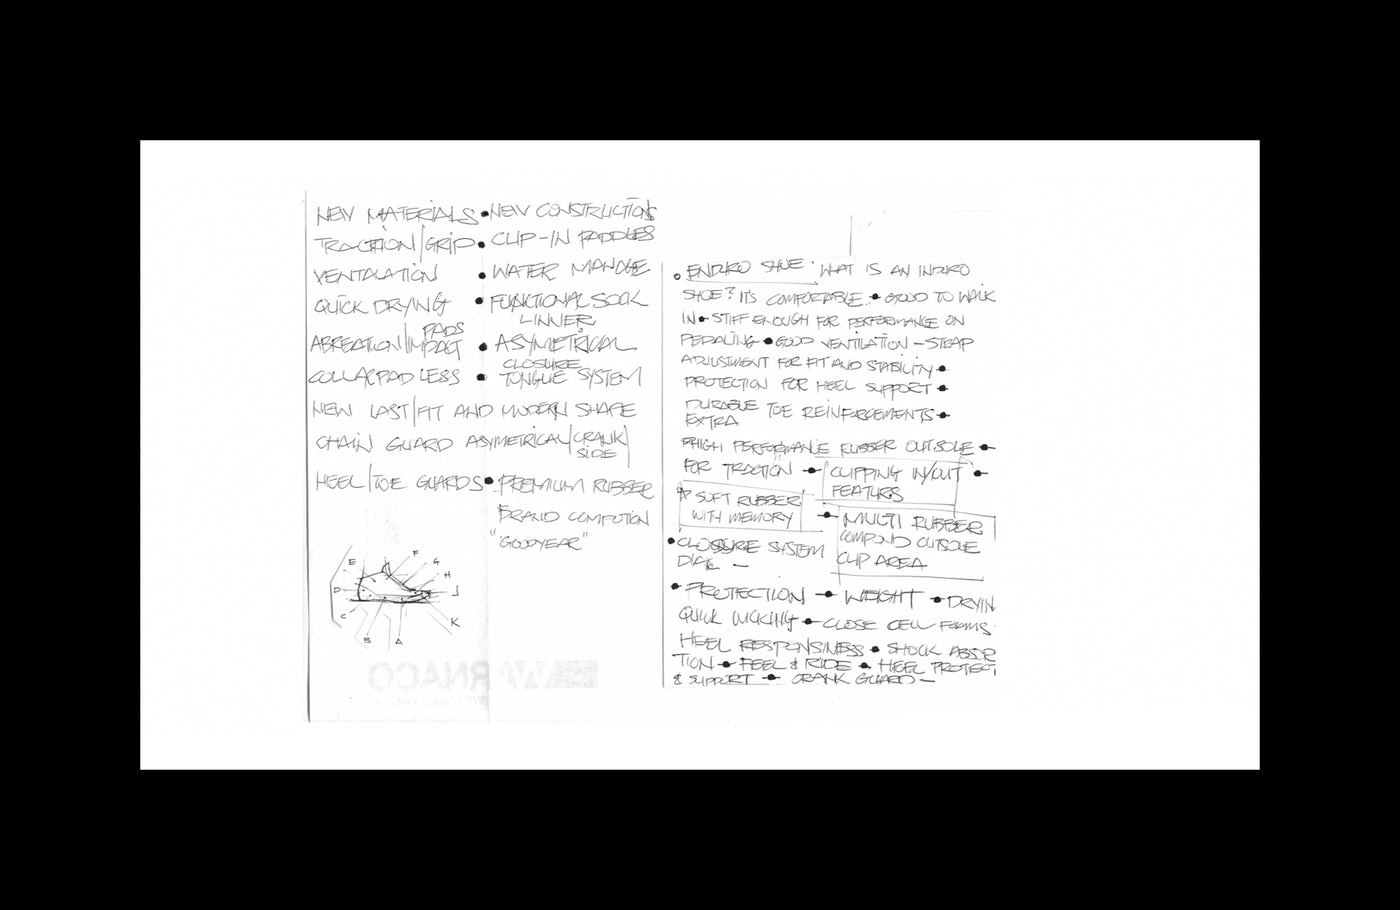 NEW MATERIALS • NEW CONSTRUCTIONS
TRACTION/GRIP • CLIP-IN PADDLES
VENTALATION • WATER MANDGE
QUICK DRYING • FUNKTIONAL SOCK
LINNER
PADS
ABREATION/IMPACT • ASYMETRICAL
CLOSURE
COLLAR PAD LESS • TONGUE SYSTEM
NEW LAST/FIT AND MODERN SHAPE
CHAIN GUARD ASYMETRICAL/CRANK/
SIDE
HEEL/TOE GUARDS • PREMIUM RUBBER
BRAND
"GOODYEAR"
E F G H
D J
C B A K
WARNACO
ENDURO SHOE • WHAT IS AN INDURO
SHOE? IT'S COMFORTABLE • GOOD TO WALK
IN • STIFF ENOUGH FOR PERFORMANCE ON
PEDALING • GOOD VENTILATION – STRAP
ADJUSTMENT FOR FIT AND STABILITY •
PROTECTION FOR HEEL SUPPORT •
DURABLE TOE REINFORCEMENTS •
EXTRA
HIGH PERFORMANCE RUBBER OUTSOLE •
FOR TRACTION • CLIPPING IN/OUT •
FEATURS
* SOFT RUBBER
WITH MEMORY
• MULTI RUBBER
COMPOND OUTSOLE
CLIP AREA
• CLOSSURE SYSTEM
DIAL –
• PROTECTION • WEIGHT • DRYIN
QUICK WICKING • CLOSE CELL FOAMS
HEEL RESPONSINESS • SHOCK ABSOR
TION • FEEL & RIDE • HEEL PROTECT
& SUPPORT • CRANK GUARD –